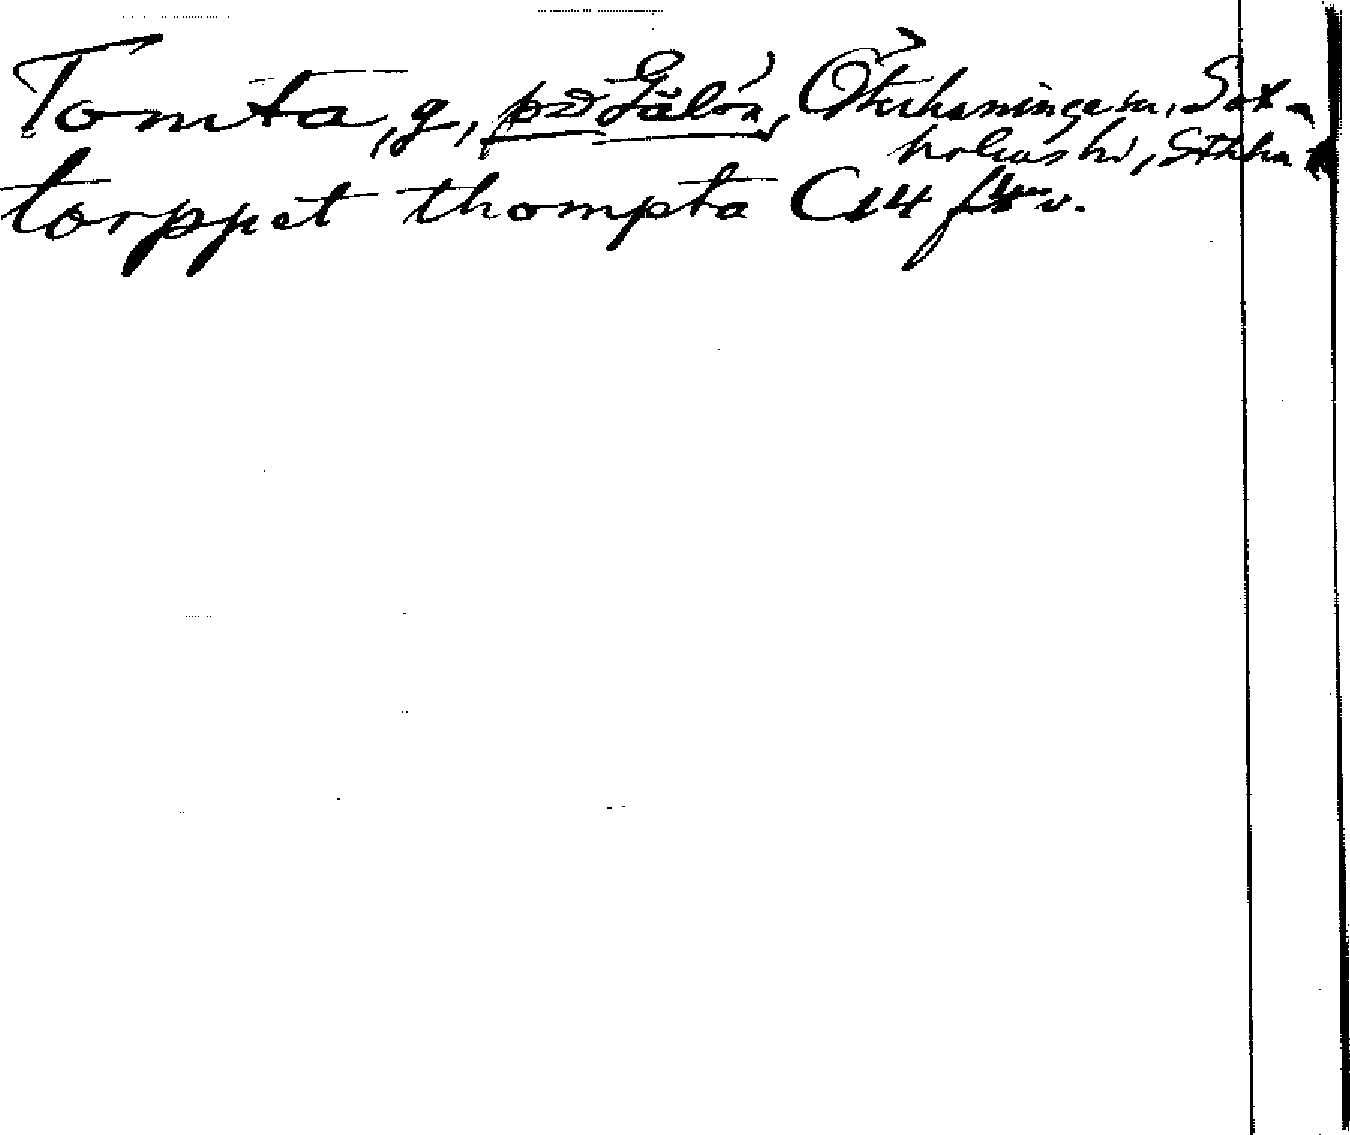 Tomta, g, på Gålön, Österhaninge sn, Sot-
holms hd, Sthlm
torppet thompta C14 f. 4 v.